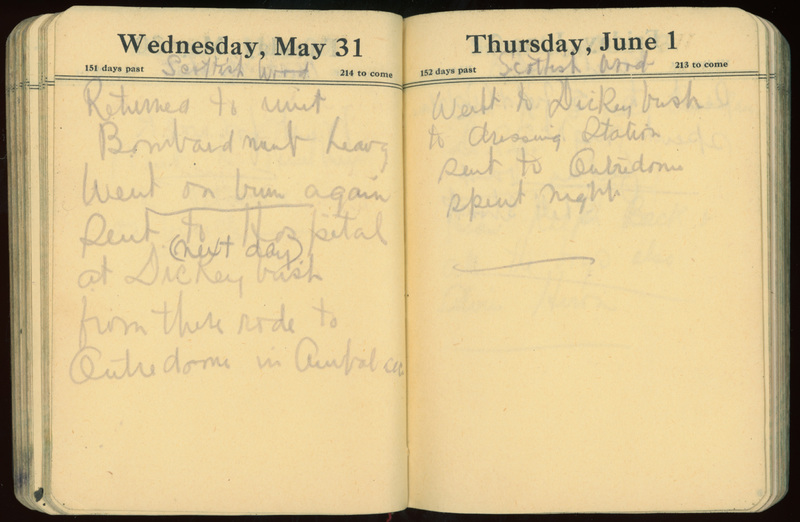 Wednesday, May 31
151 days past
Scottish Wood
214 to come
Returned to unit
Bombardment heavy
Went on bum again
Sent to Hospital
(next day)
at Dickey bush
from there rode to
Outredome in
Thursday, June 1
152 days past
Scottish Wood
213 to come
Went to Dickey bush
to dressing Station
sent to Outredome
spent night